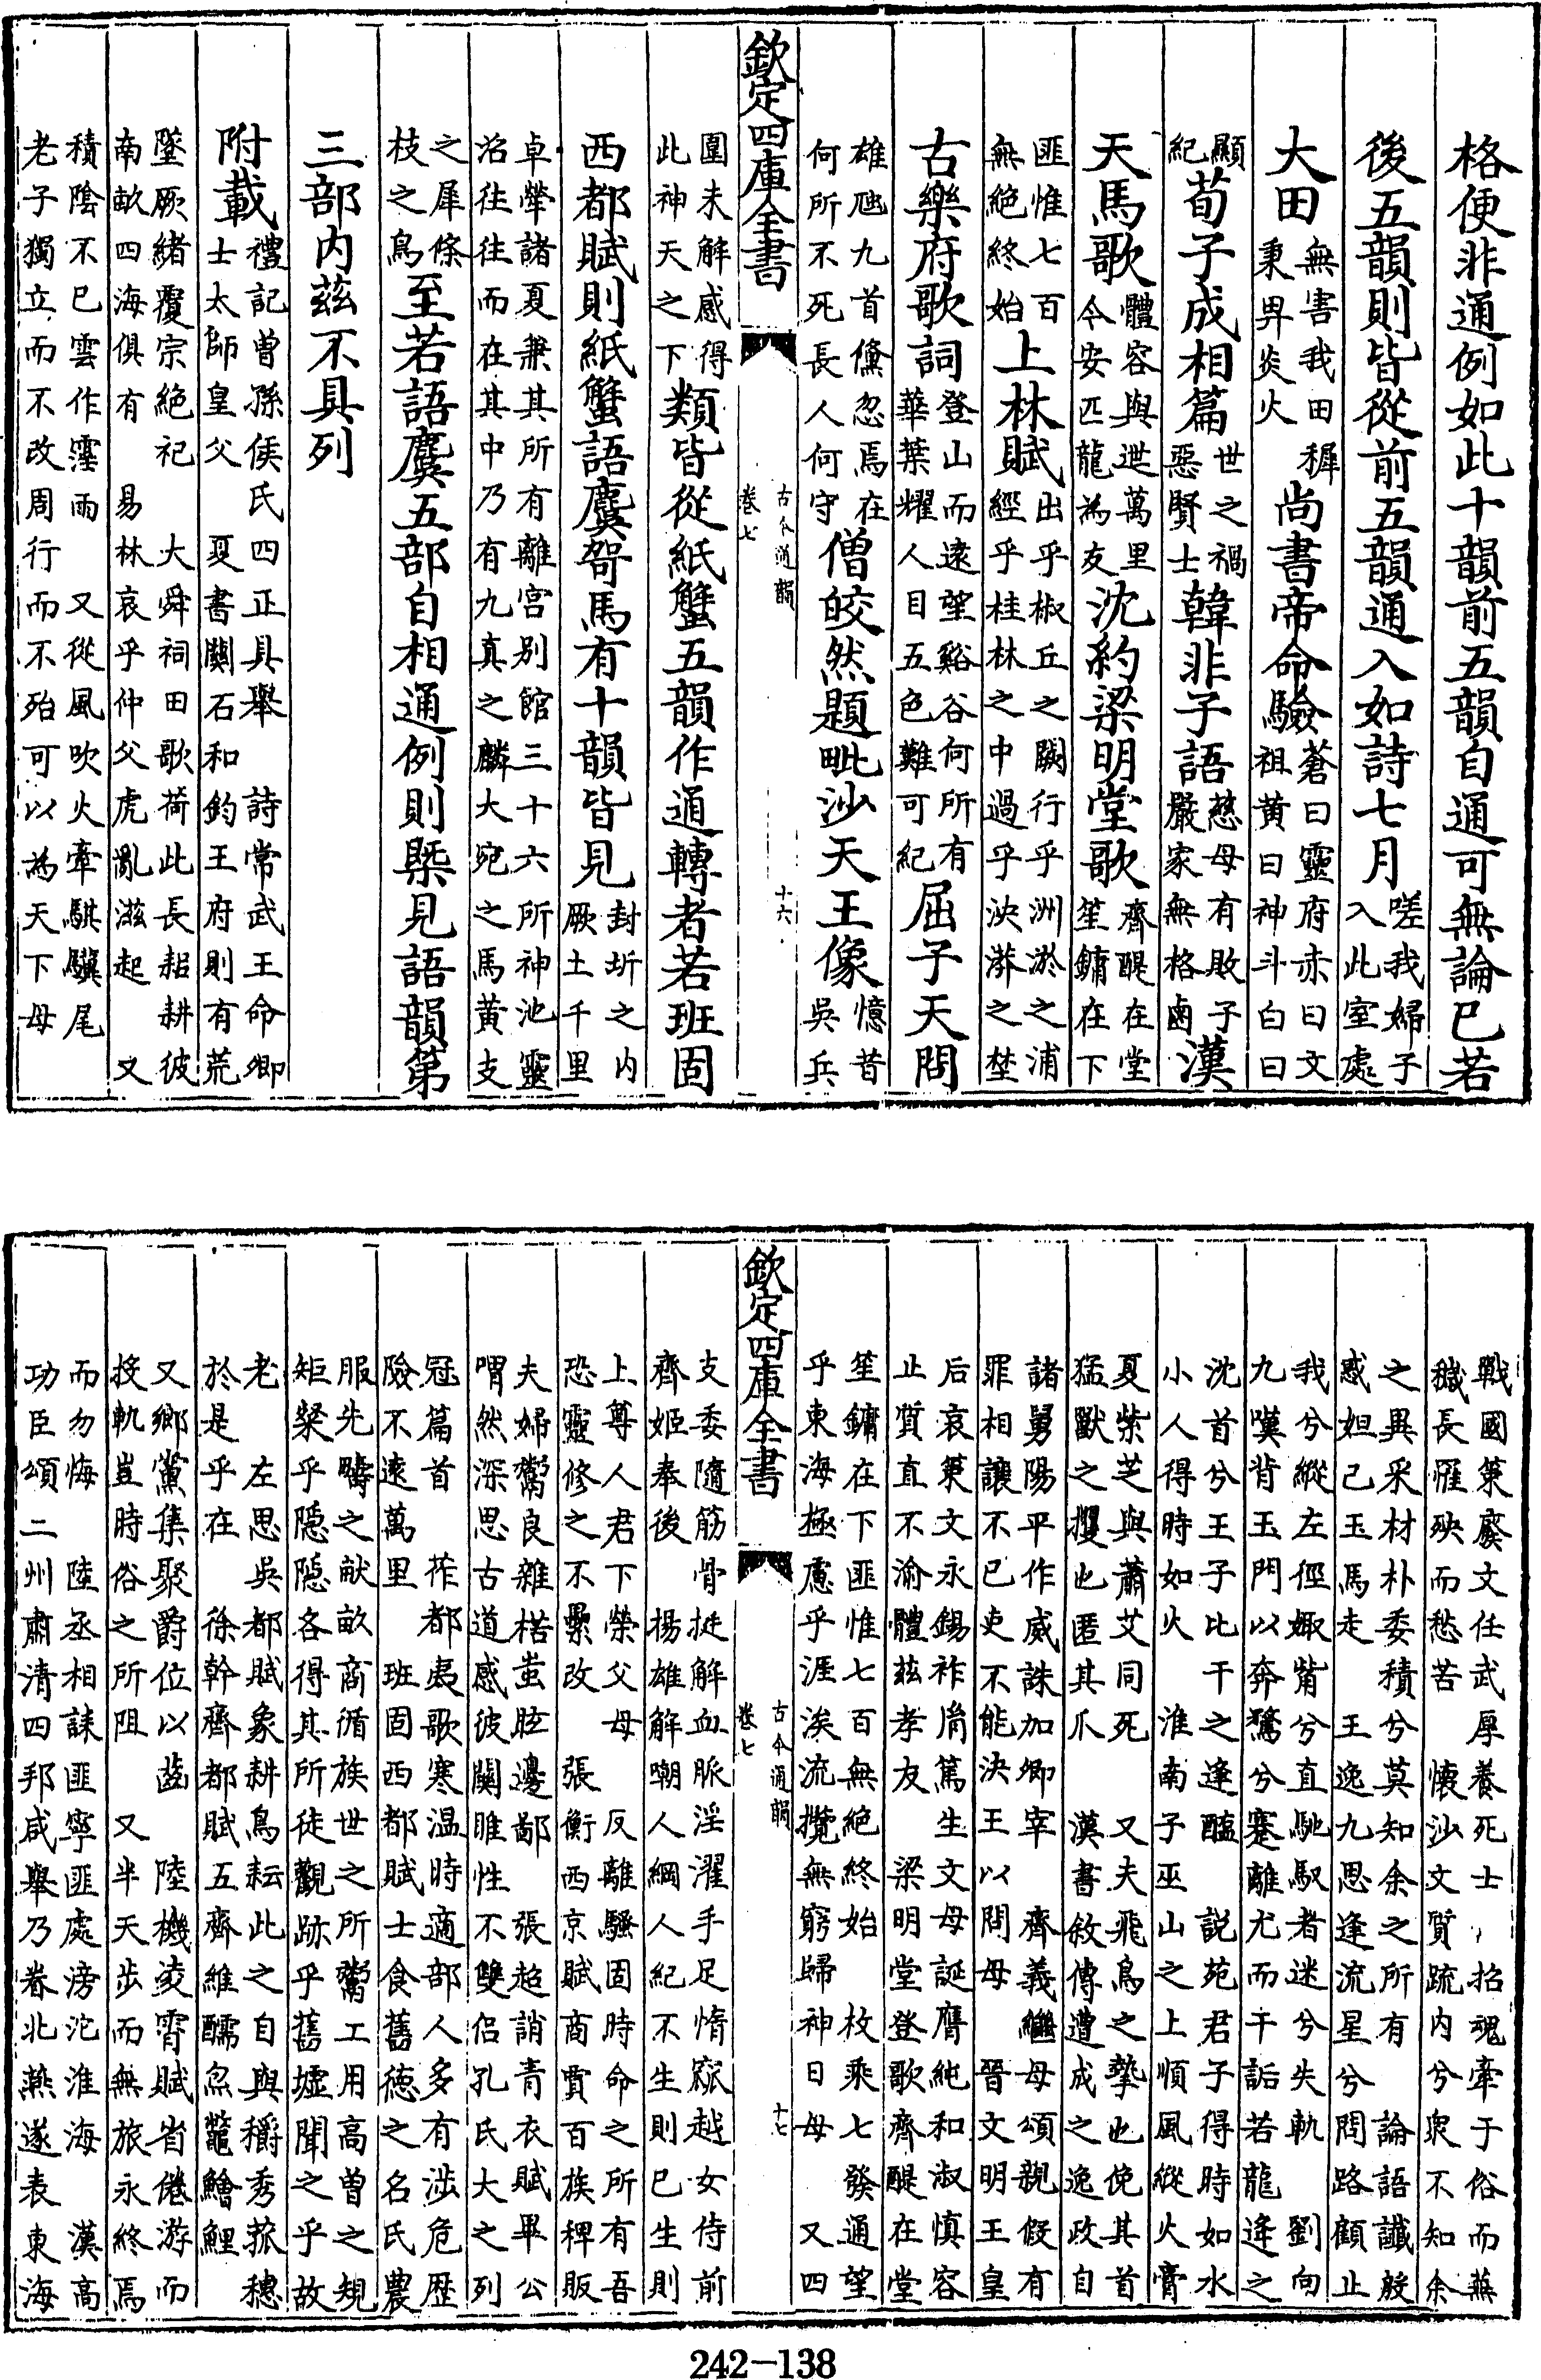 格便非通例如此十韻前五韻自通可無論已若
後五韻則皆從前五韻通入如詩七月嗟我婦子入此室處
大田無害我田穉秉畀炎火尚書帝命驗蒼曰靈府赤曰文祖黄曰神斗白曰
顯紀荀子成相篇世之禍惡賢士韓非子語慈母有敗子嚴家無格鹵漢
天馬歌體容與迣萬里令安匹龍為友沈約梁明堂歌齊醍在堂笙鏞在下
匪惟七百無絶終始上林賦出乎椒丘之闕行乎洲淤之浦經乎桂林之中過乎泱漭之壄
古樂府歌詞登山而遠望谿谷何所有華葉耀人目五色難可紀屈子天問
雄虺九首儵忽焉在何所不死長人何守僧皎然題毗沙天王像憶昔吳兵
欽定四庫全書
古今通韻
卷七
十六
圍未解感得此神天之下類皆從紙蟹五韻作通轉者若班固
西都賦則紙蟹語麌哿馬有十韻皆見封圻之内厥土千里
卓犖諸夏兼其所有離宫别館三十六所神池靈沼往往而在其中乃有九真之麟大宛之馬黄支
之犀條枝之鳥至若語麌五部自相通例則槩見語韻第
三部内兹不具列
附載禮記曾孫侯氏四正具舉 詩常武王命卿士太師皇父 夏書關石和鈞王府則有荒
墜厥緒覆宗絶祀 大舜祠田歌荷此長耜耕彼南畝四海俱有 易林哀乎仲父虎亂滋起 又
積陰不已雲作淫雨 又從風吹火牽騏驥尾 老子獨立而不改周行而不殆可以為天下母
戰國策廢文任武厚養死士 招魂牽于俗而蕪穢長懼殃而愁苦 懷沙文質疏内兮衆不知余
之異采材朴委積兮莫知余之所有 論語讖殷惑妲己玉馬走 王逸九思逢流星兮問路顧止
我兮縱左徑娵觜兮直馳馭者迷兮失軌 劉向九嘆背玉門以奔騖兮蹇離尤而干詬若龍逢之
沈首兮王子比干之逢醢 説苑君子得時如水小人得時如火 淮南子巫山之上順風縱火膏
夏紫芝與蕭艾同死 又夫飛鳥之摯也俛其首猛獸之攫也匿其爪 漢書敘傳遭成之逸政自
諸舅陽平作威誅加卿宰 齊義繼母頌親假有罪相讓不已吏不能決王以問母 晉文明王皇
后哀策文永錫祚胤篤生文母誕膺純和淑慎容止質直不渝體兹孝友 梁明堂登歌齊醍在堂
笙鏞在下匪惟七百無絶終始 枚乘七發通望乎東海極慮乎涯涘流攬無窮歸神日母 又四
欽定四庫全書
古今通韻
卷七
十七
支委隨筋骨挺解血脈淫濯手足惰窳越女侍前齊姬奉後 揚雄解嘲人綱人紀不生則已生則
上尊人君下榮父母 反離騷固時命之所有吾恐靈修之不纍改 張衡西京賦商賈百族裨販
夫婦鬻良雜楛蚩眩邊鄙 張超誚青衣賦畢公喟然深思古道感彼關雎性不雙侣孔氏大之列
冠篇首 莋都夷歌寒温時適部人多有涉危歴險不遠萬里 班固西都賦士食舊德之名氏農
服先疇之畎畝商循族世之所鬻工用高曾之規矩粲乎隱隱各得其所徒觀跡乎舊墟聞之乎故
老 左思吳都賦象耕鳥耘此之自與穱秀菰穗於是乎在 徐幹齊都賦五齊維醹炰鼈鱠鯉
又鄉黨集聚爵位以齒 陸機淩霄賦省倦游而投軌豈時俗之所阻 又半天步而無旅永終焉
而勿悔 陸丞相誄匪寧匪處滂沱淮海 漢高功臣頌二州肅清四邦咸舉乃眷北燕遂表東海
242-138